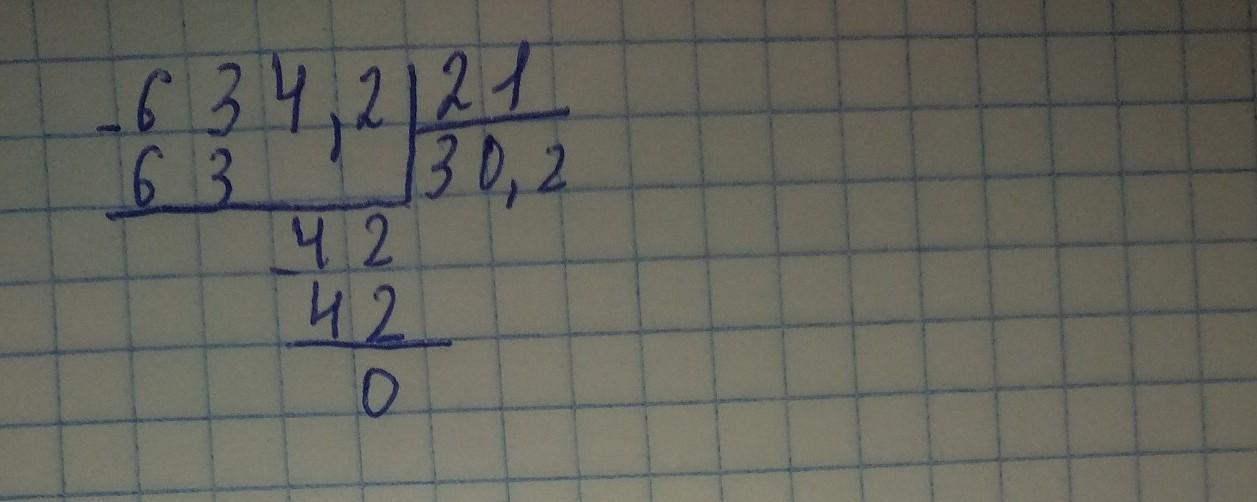 - 6 3 4 , 2 | 2 1
6 3 | 3 0 , 2
- 4 2
4 2
0